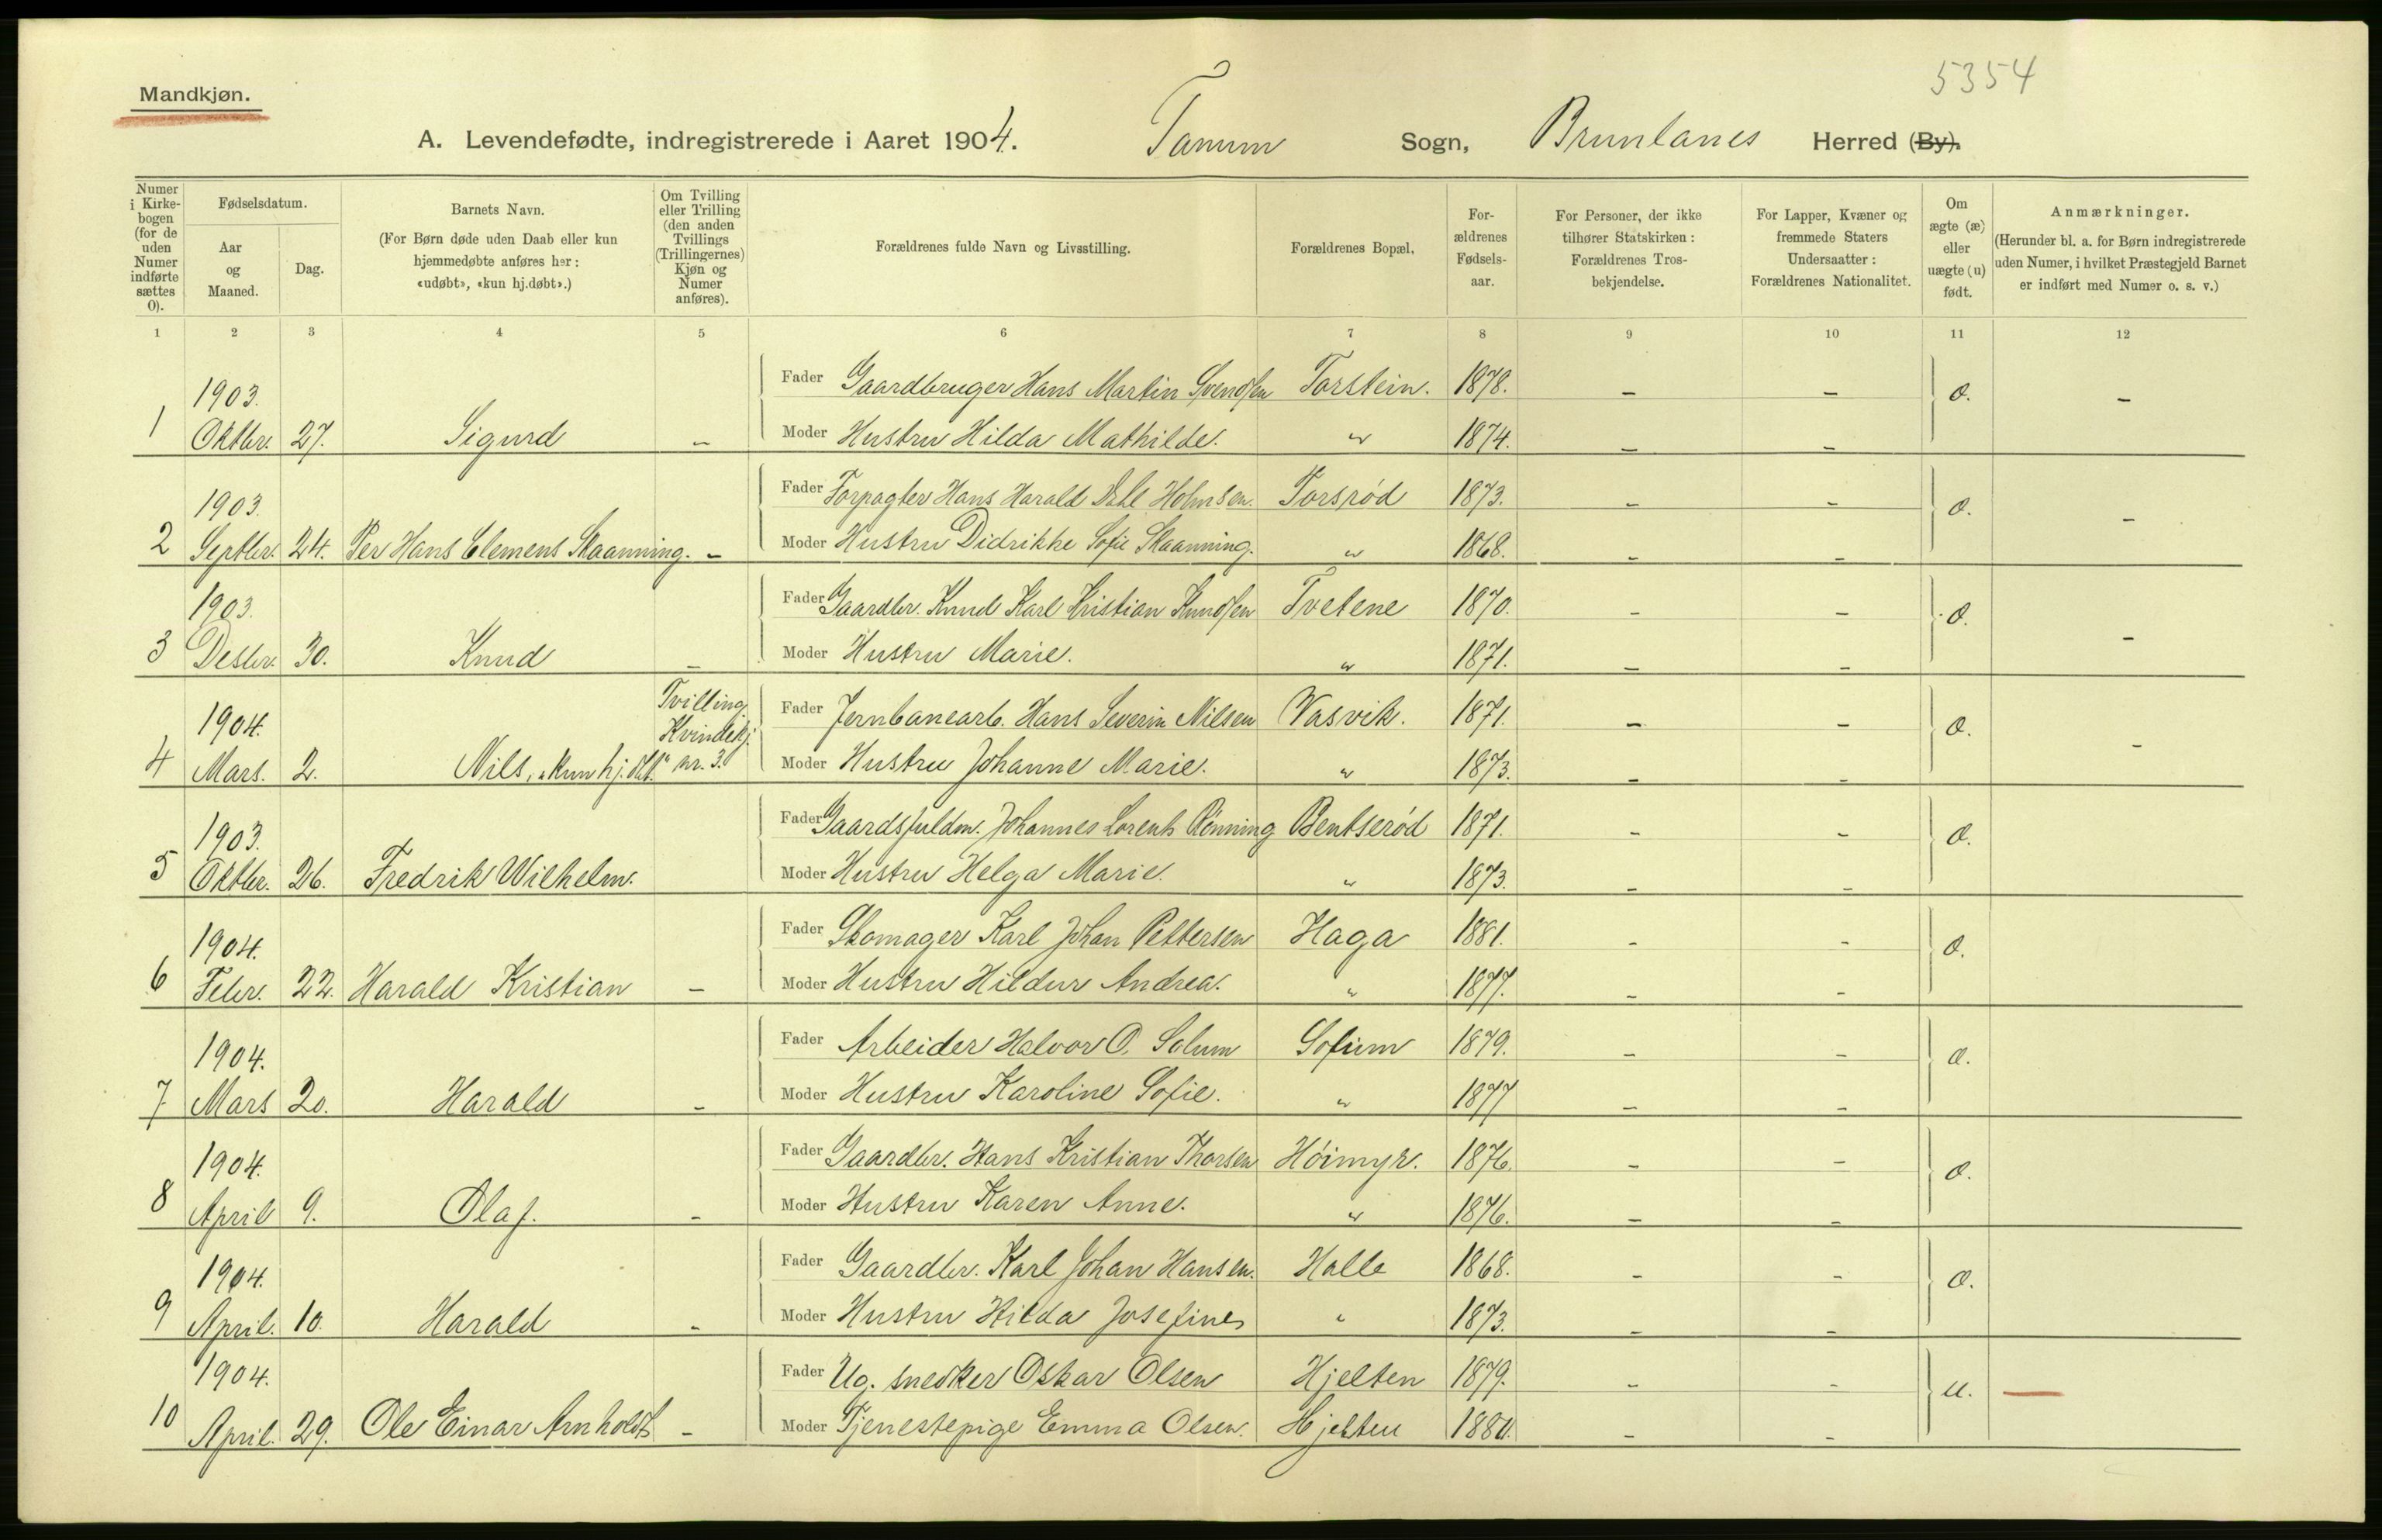 5354
Mandkjøn.
A. Levendefødte, indregistrerede i Aaret 1904. Tanum Sogn, Brunlanes Herred (By).
Numer i Kirke-bogen (for de uden Numer indførte sættes 0).
Fødselsdatum.
Aar og Maaned.
Dag.
Barnets Navn.
(For Børn døde uden Daab eller kun hjemmedøbte anføres her: «udøbt», «kun hj.døbt».)
Om Tvilling eller Trilling (den anden Tvillings (Trillingernes) Kjøn og Numer anføres).
Forældrenes fulde Navn og Livsstilling.
Forældrenes Bopæl.
For-ældrenes Fødsels-aar.
For Personer, der ikke tilhører Statskirken: Forældrenes Tros-bekjendelse.
For Lapper, Kvæner og fremmede Staters Undersaatter: Forældrenes Nationalitet.
Om ægte (æ) eller uægte (u) født.
Anmærkninger.
(Herunder bl. a. for Børn indregistrerede uden Numer, i hvilket Præstegjeld Barnet er indført med Numer o. s. v.)
1 2 3 4 5 6 7 8 9 10 11 12
1903. Fader Gaardbruger Hans Martin Svendsen Torstein. 1878. – – æ. –
1 Oktbr. 27. Sigurd – Moder Hustru Hilda Mathilde. " 1874. – –
1903. Fader Forpagter Hans Harald Dahl Holmsen. Torsrød 1873. – – æ. –
2 Septbr. 24. Per Hans Clemens Skaanning. – Moder Hustru Didrikke Sofie Skaanning. " 1868. – –
1903. Fader Gaardbr. Knud Karl Kristian Knudsen Tvetene 1870. – – æ. –
3 Desbr. 30. Knud – Moder Hustru Marie. " 1871. – –
1904. Tvilling. Kvindekj. Fader Jernbanearb. Hans Severin Nilsen Vasvik. 1871. – – æ. –
4 Mars. 2. Nils, "kun hj. dbt." nr. 3. Moder Hustru Johanne Marie. " 1873. – –
1903. Fader Gaardsfuldm. Johannes Lorents Rønning Bentserød 1871. – – æ.
5 Oktbr. 26. Fredrik Wilhelm. Moder Hustru Helga Marie. " 1873. – –
1904. Fader Skomager Karl Johan Pettersen Haga 1881. – – æ.
6 Febr. 22. Harald Kristian – Moder Hustru Hildur Andrea. " 1877. – –
1904. Fader Arbeider Halvor O. Solum Sofium 1879. – – æ.
7 Mars 20. Harald – Moder Hustru Karoline Sofie. " 1877 – –
1904. Fader Gaardbr. Hans Kristian Thorsen Høimyr. 1876. – – æ.
8 April 9. Olaf. – Moder Hustru Karen Anne. " 1876. – –
1904. Fader Gaardbr. Karl Johan Hansen. Halle 1868. – – æ.
9 April. 10. Harald – Moder Hustru Hilda Josefine " 1873. – –
1904. Fader Ug. snedker Oskar Olsen Hjelten 1879. – – u. —
10 April. 29. Ole Einar Arnholdt – Moder Tjenestepige Emma Olsen. Hjelten 1880. – –